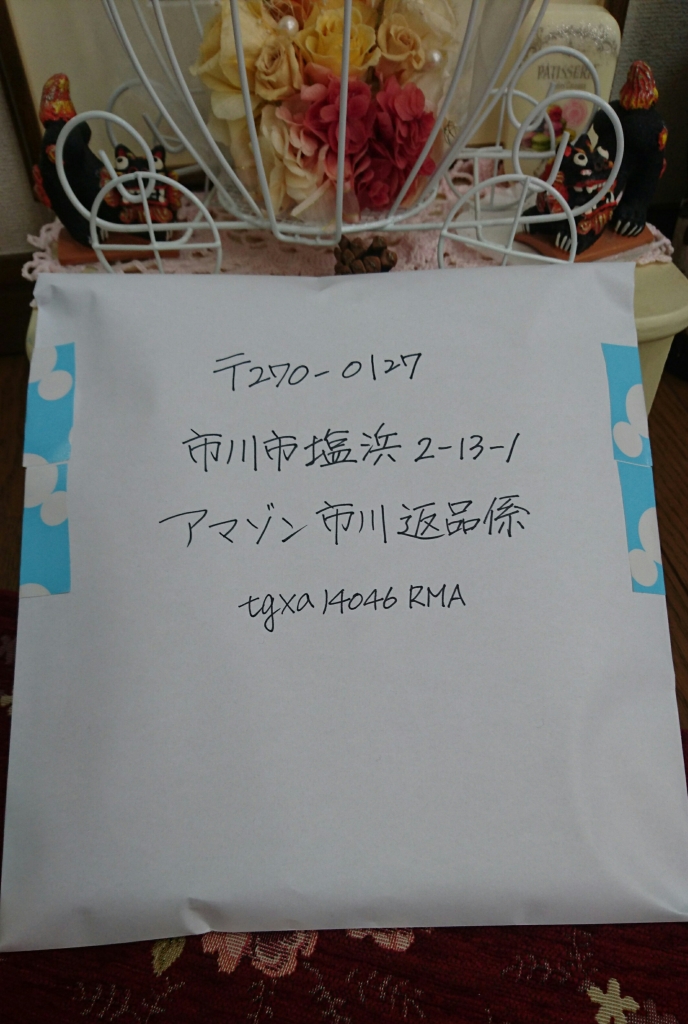 PATISSERIE
〒270-0127
市川市塩浜2-13-1
アマゾン市川返品係
tgxa14046RMA